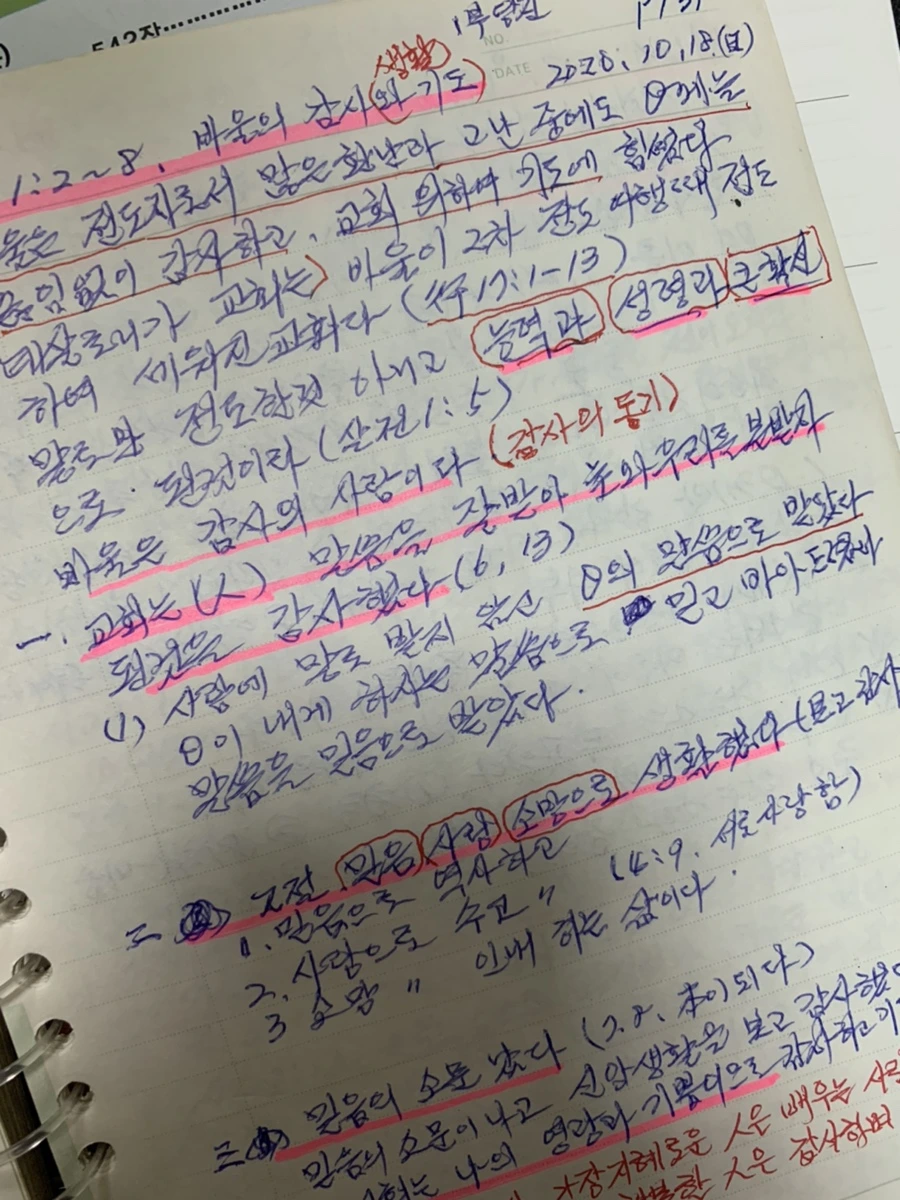 542장
1부
P131
NO.
DATE 2020. 10. 18.(日)
생활
1:2~8. 바울의 감사와 기도
울은 전도자로서 많은 환난과 고난 중에도 θ께 늘
끊임없이 감사하고, 교회 위하여 기도에 힘썼다
데살로니가 교회는) 바울이 2차 전도 여행때 전도
하여 세워진 교회다 (行 17:1-13)
말로만 전도한것 아니고 능력과 성령과 큰 확신
으로 된것이라 (살전 1:5)
바울은 감사의 사람이다 (감사의 동기)
一. 교회는 (人) 말씀을 잘받아 主와 우리를 본받자
된것을 감사했다 (6, 13)
(1) 사람에 말로 받지 않신 θ의 말씀으로 받았다
θ이 내게 하시는 말씀으로 믿고 받아드렸다
말씀을 믿음으로 받았다.
二. 3절 믿음 사랑 소망으로 생활했다 (보고 감사
1. 믿음으로 역사하고
2. 사랑으로 수고 〃 (4:9. 서로 사랑함)
3 소망 〃 인내 하는 삶이다.
三. 믿음의 소문 났다 (7.8. 本이 되다)
믿음의 소문이 나고 신앙생활을 보고 감사했
교회는 나의 영광과 기쁨이으로 감사하고 기
가장 지혜로운 人은 배우는 사람
행복한 人은 감사하며